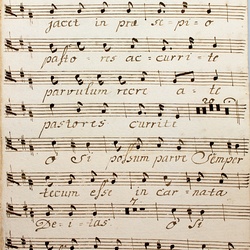 jacet in præ se pi=o
pasto=res ac=curri=te
parvulum recre a=te
20
pastores currite
O Si possum parvi Semper
tecum esse in car=nata
7
De=i=tas O Si